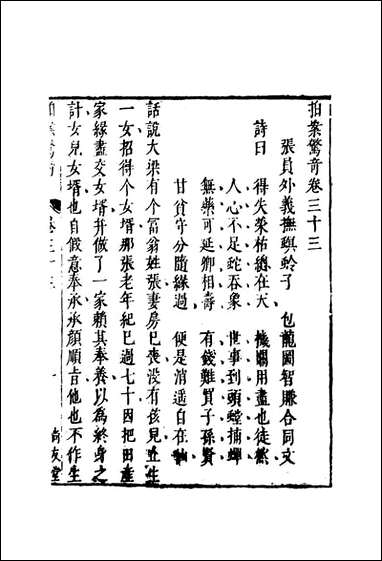 拍案驚奇卷三十三
張員外義撫螟蛉子 包龍圖智賺合同文
詩曰 得失榮枯總在天 機關用盡也徒然
人心不足蛇吞象 世事到頭螳捕蟬
無藥可延卿相壽 有錢難買子孫賢
甘貧守分隨緣過 便是消遙自在
話說大梁有个富翁姓張妻房已喪没有孩兒止生
一女招得个女壻那張老年紀已過七十因把田產
家緣盡交女壻并做了一家賴其奉養以為終身之
計女兒女壻也自假意奉承承顔順旨他也不作生
拍案驚奇 卷三十三 一 尚友堂